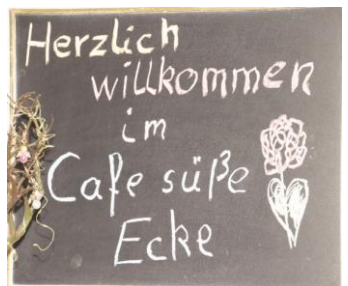 Herzlich
willkommen
im
Cafe süße
Ecke